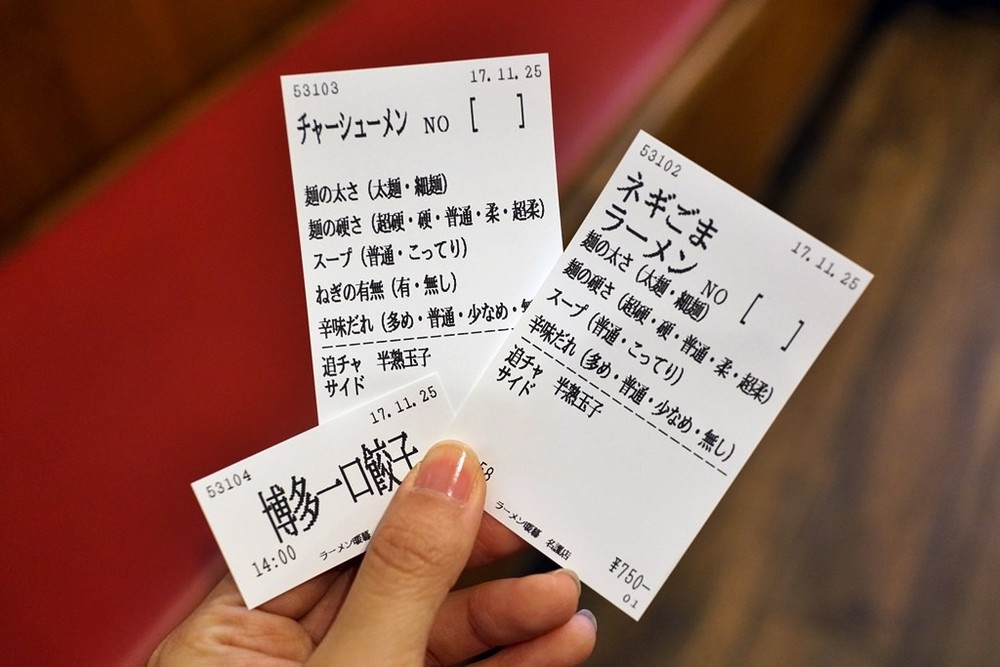 53103 17.11.25
チャーシューメン NO [ ]
麺の太さ（太麺・細麺）
麺の硬さ（超硬・硬・普通・柔・超柔）
スープ（普通・こってり）
ねぎの有無（有・無し）
辛味だれ（多め・普通・少なめ・
追チャ 半熟玉子
サイド
53102 17.11.25
ネギごま
ラーメン NO [ ]
麺の太さ（太麺・細麺）
麺の硬さ（超硬・硬・普通・柔・超柔）
スープ（普通・こってり）
辛味だれ（多め・普通・少なめ・無し）
追チャ 半熟玉子
サイド
58
ラーメン暖暮 名護店
¥750-
01
53104 17.11.25
博多一口餃子
14:00 ラーメン暖暮